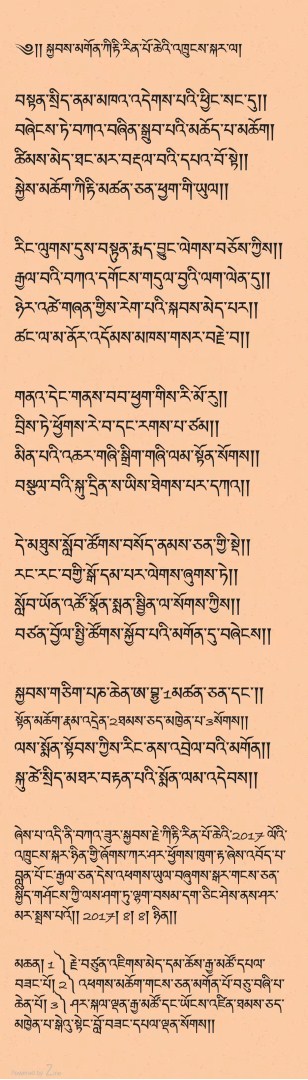 ༄༅།། སྐྱབས་མགོན་ཀིརྟི་རིན་པོ་ཆེའི་འཁྲུངས་སྐར་ལ།
བསྟན་སྲིད་ནམ་མཁའ་འདེགས་པའི་ཕྱིང་སང་དུ།།
བཞེངས་ཏེ་བཀའ་བཞིན་སྒྲུབ་པའི་མཆོད་པ་མཆོག།
ཚིམས་མེད་ཐང་མར་བརྡལ་བའི་དཔའ་བོ་སྟེ།།
སྐྱེས་མཆོག་ཀིརྟི་མཚན་ཅན་ཕྱག་གི་ཡུལ།།
རིང་ལུགས་དུས་བསྟུན་རྨད་བྱུང་ལེགས་བཅོས་ཀྱིས།།
རྒྱལ་བའི་བཀའ་དགོངས་གདུལ་བྱའི་ལག་ལེན་དུ།།
ཉེར་འཚེ་གཞན་གྱིས་རེག་པའི་སྐབས་མེད་པར།།
ཚང་ལ་མ་ནོར་འདོམས་མཁས་གསར་བརྗེ་བ།།
གནའ་དེང་གནས་བབ་ཕྱག་གིས་རི་མོ་རུ།།
བྲིས་ཏེ་ཕྱོགས་རེ་བ་དང་རགས་པ་ཙམ།།
མིན་པའི་འཆར་གཞི་སྒྲིག་གཞི་ལམ་སྟོན་སོགས།།
བསྩལ་བའི་སྐུ་དྲིན་ས་ཡིས་ཐེགས་པར་དཀའ།།
དེ་མཐུས་སློབ་ཚོགས་བསོད་ནམས་ཅན་གྱི་སྡེ།།
རང་རང་བགྱི་སྒོ་དམ་པར་ལེགས་ཞུགས་ཏེ།།
སློབ་ཡོན་འཚོ་སྣོན་སྨན་སྦྱིན་ལ་སོགས་ཀྱིས།།
བཙན་བྱོལ་སྤྱི་ཚོགས་སྐྱོབ་པའི་མགོན་དུ་བཞེངས།།
སྐྱབས་གཅིག་པཎ་ཆེན་ཨ་བྷྱ་1མཚན་ཅན་དང་།།
སྟོན་མཆོག་རྣམ་འདྲེན་2ཐམས་ཅད་མཁྱེན་པ་3སོགས།།
ལས་སྨོན་སྟོབས་ཀྱིས་རིང་ནས་འབྲེལ་བའི་མགོན།།
སྐུ་ཚེ་སྲིད་མཐར་བརྟན་པའི་སྨོན་ལམ་འདེབས།།
ཞེས་པ་འདི་ནི་བཀའ་ཟུར་སྐྱབས་རྗེ་ཀིརྟི་རིན་པོ་ཆེའི་2017 ལོའི་
འཁྲུངས་སྐར་ཉིན་གྱི་ཞོགས་ཀར་ཤར་ཕྱོགས་ཁུག་རྟ་ཞེས་འབོད་པ་
བླུན་པོ་ང་རྒྱལ་ཅན་དེས་འཕགས་ཡུལ་བཞུགས་སྒར་གངས་ཅན་
སྐྱིད་གཤོངས་ཀྱི་ལས་ཤག་ཏུ་ལྷག་བསམ་དག་ཅིང་ཤེས་ནས་ཤར་
མར་སྤྲས་པའོ།། 2017། 8། 8། ཉིན།།
མཆན། 1 ༽ རྗེ་བཙུན་འཇིགས་མེད་དམ་ཆོས་རྒྱ་མཚོ་དཔལ་
བཟང་པོ། 2 ༽ འཕགས་མཆོག་གངས་ཅན་མགོན་པོ་བཅུ་བཞི་པ་
ཆེན་པོ། 3 ༽ ཤར་སྐལ་ལྡན་རྒྱ་མཚོ་དང་ཡོངས་འཛིན་ཐམས་ཅད་
མཁྱེན་པ་སྒེའུ་སྟེང་བློ་བཟང་དཔལ་ལྡན་སོགས།།